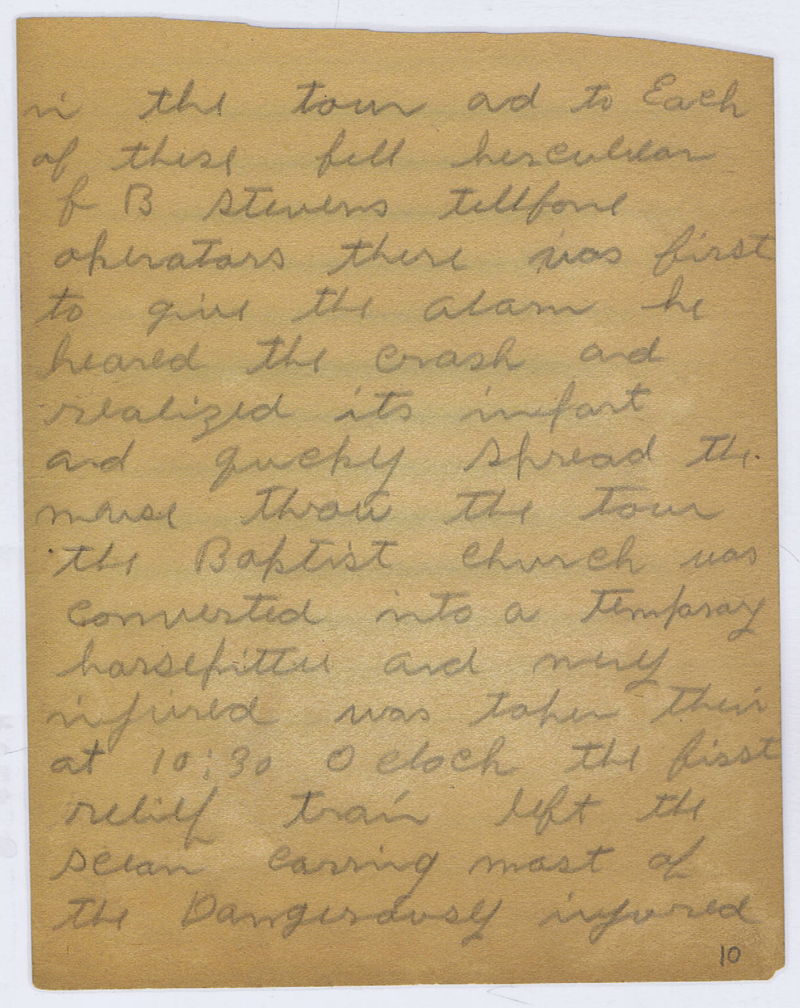 in the tour ad to Each
of these fell hercululan
f B Stevens tellfone
operators there was first
to give the alarm he
heared the crash and
realized its infart
and quckly spread the
nouse throu the tour
the Baptist church was
converted into a tempray
horsepittle and meny
injured was taken their
at 10:30 O clock the first
relief train left the
scean carring most of
the Dangerously injured
10